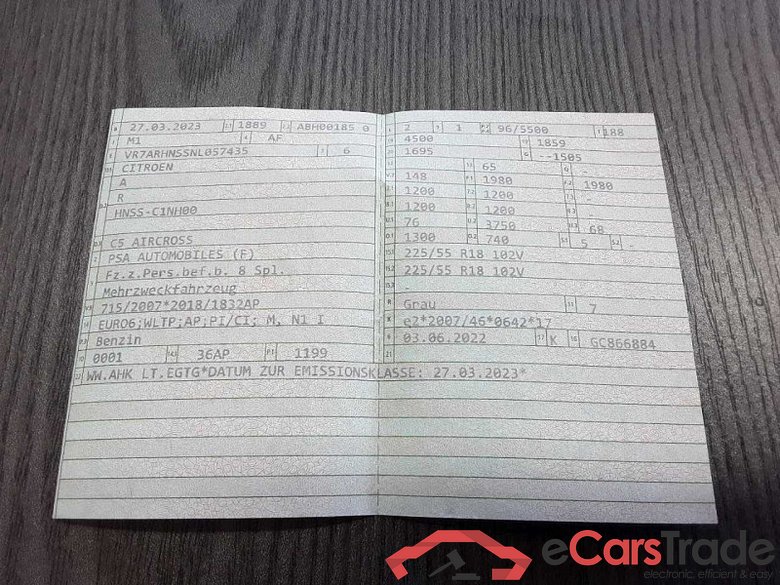 27.03.2023 1889 ABH00185 0
M1 AF
VR7ARHNSSNL057435 6
CITROEN
A
R
HNSS-C1NH00
C5 AIRCROSS
PSA AUTOMOBILES (F)
Fz.z.Pers.bef.b. 8 Spl.
Mehrzweckfahrzeug
715/2007*2018/1832AP
EURO6;WLTP;AP;PI/CI; M, N1 I
Benzin
0001 36AP P.1 1199
WW.AHK LT.EGTG*DATUM ZUR EMISSIONSKLASSE: 27.03.2023*
2 1 96/5500 188
4500 1859
1695 --1505
65 -
148 1980 1980
1200 1200 -
1200 1200 -
76 3750 68
1300 740 5 -
225/55 R18 102V
225/55 R18 102V
-
R Grau 7
K e2*2007/46*0642*17
03.06.2022 K GC866884
eCarsTrade
electronic, efficient & easy